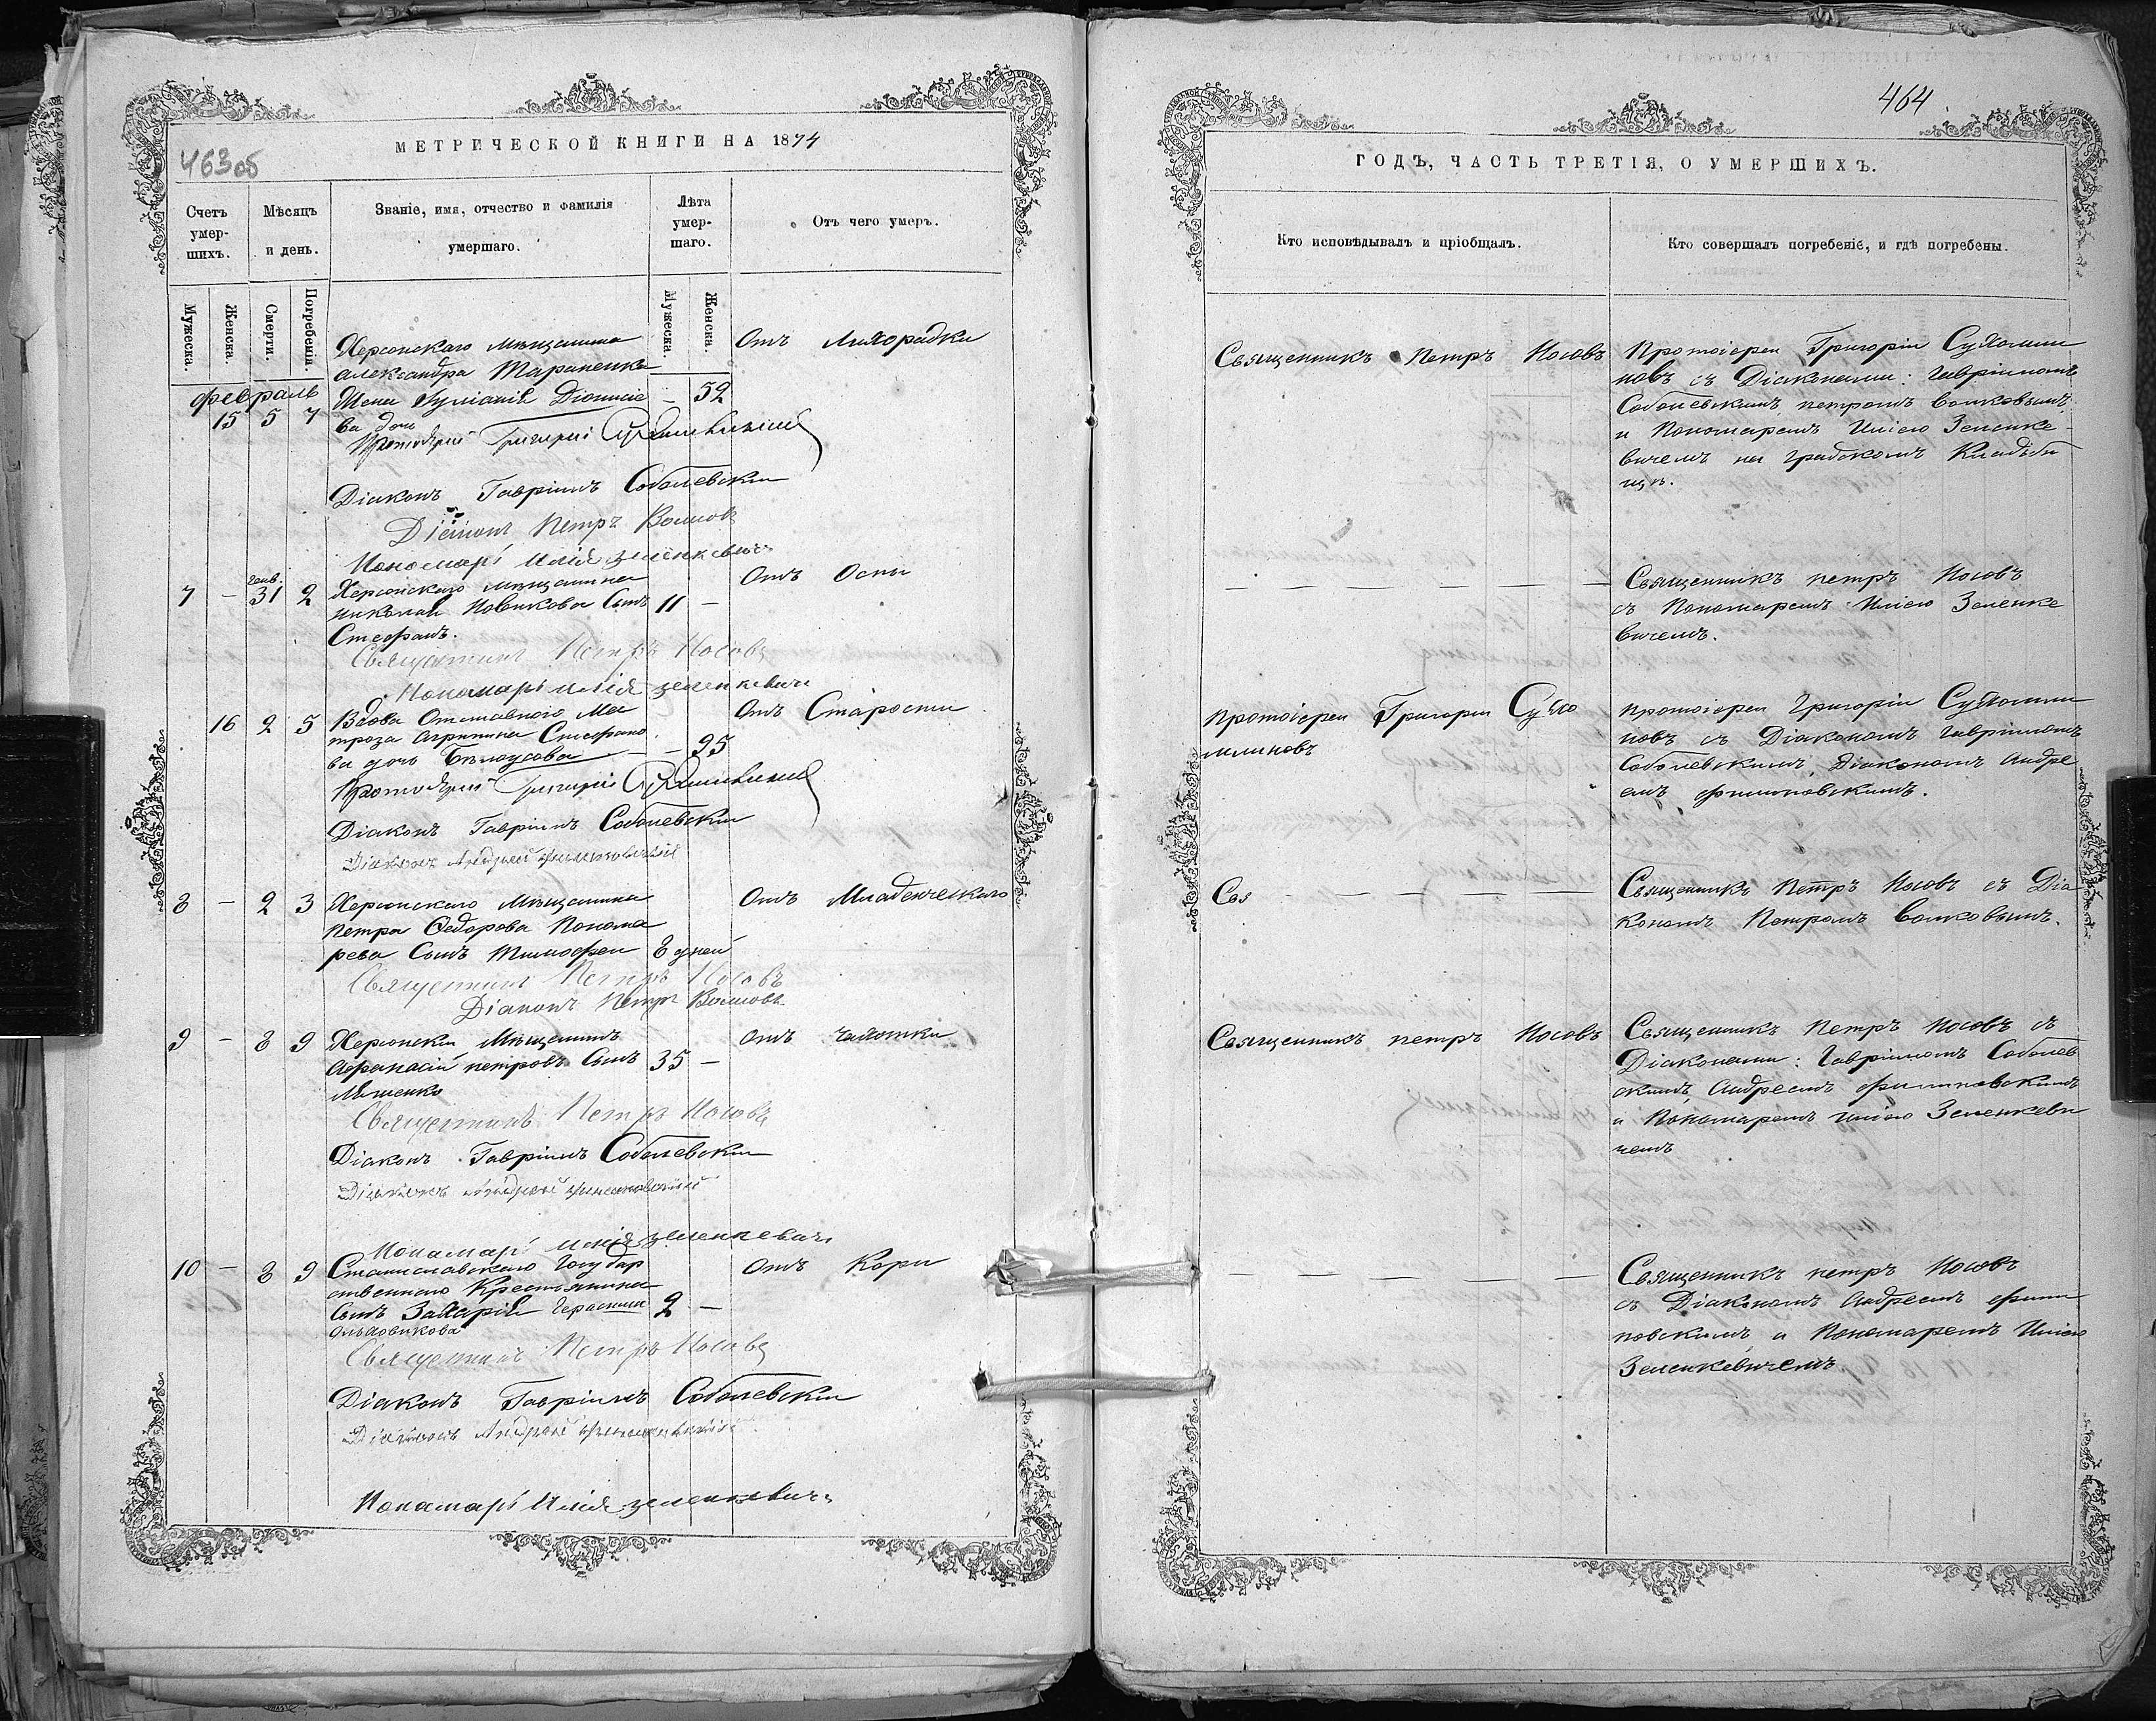 463об
МЕТРИЧЕСКОЙ КНИГИ НА 1874
Счетъ умер-шихъ.
Мѣсяцъ и день.
Званіе, имя, отчество и фамилія умершаго.
Лѣта умер-шаго.
Отъ чего умеръ.
Мужеска.
Женска.
Смерти.
Погребенія.
Мужеска.
Женска.
Февраль
15 5 7
Херсонскаго мѣщанина
Александра Тараненка
Жена Іуліанія Діонисіе
ва дочь
– 52
Отъ Лихорадки
Протоіерей Григорій
Діаконъ Гавріилъ Соболевскій
Діаконъ Петръ Волковъ
Пономарь Илія Зеленкевичъ
7 – генв. 31 2
Херсонскаго мѣщанина
Николая Новикова Сынъ
Стефанъ.
11 –
Отъ Оспы
Священникъ Петръ Носовъ
Пономарь Илія Зеленкевичъ
16 2 5
Вдова Отставного Ма
троза Агрипина Стефано
ва дочь Бѣлоусова
– 95
Отъ Старости
Протоіерей Григорій
Діаконъ Гавріилъ Соболевскій
Діаконъ Андрей Филиповскій
8 – 2 3
Херсонскаго Мѣщанина
Петра Федорова Понома
рева Сынъ Тимофей
8 дней
Отъ Младенческаго
Священникъ Петръ Носовъ
Діаконъ Петръ Волковъ
9 – 8 9
Херсонскій Мѣщанинъ
Афанасій Петровъ Сынъ
35 –
Отъ Чахотки
Священникъ Петръ Носовъ
Діаконъ Гавріилъ Соболевскій
Діаконъ Андрей Филиповскій
Пономарь Илія Зеленкевичъ
10 – 8 9
Станиславскаго Государ
ственнаго Крестьянина
Сынъ Захарій Герасим
2 –
Отъ Кори
Священникъ Петръ Носовъ
Діаконъ Гавріилъ Соболевскій
Діаконъ Андрей Филиповскій
Пономарь Илія Зеленкевичъ
464
ГОДЪ, ЧАСТЬ ТРЕТІЯ, О УМЕРШИХЪ.
Кто исповѣдывалъ и пріобщалъ.
Кто совершалъ погребеніе, и гдѣ погребены.
Священникъ Петръ Носовъ
Протоіерей Григорій Сухомли
новъ съ Діаконами: Гавріиломъ
Соболевскимъ, Петромъ Волковымъ,
и Пономаремъ Иліею Зеленке-
вичемъ на Градскомъ Кладби
щѣ.
Священникъ Петръ Носовъ
съ Пономаремъ Иліею Зеленке
вичемъ.
Протоіерей Григорій Сухо
млиновъ
Протоіерей Григорій Сухомли
новъ съ Діакономъ Гавріиломъ
Соболевскимъ, Діакономъ Андре
емъ Филиповскимъ.
Свя
Священникъ Петръ Носовъ съ Діа
кономъ Петромъ Волковымъ.
Священникъ Петръ Носовъ
Священникъ Петръ Носовъ съ
Діаконами: Гавріиломъ Соболев
скимъ, Андреемъ Филиповскимъ
и Пономаремъ Иліею Зеленкеви
чемъ
Священникъ Петръ Носовъ
съ Діакономъ Андреемъ Фили
повскимъ, и Пономаремъ Иліею
Зеленкевичемъ